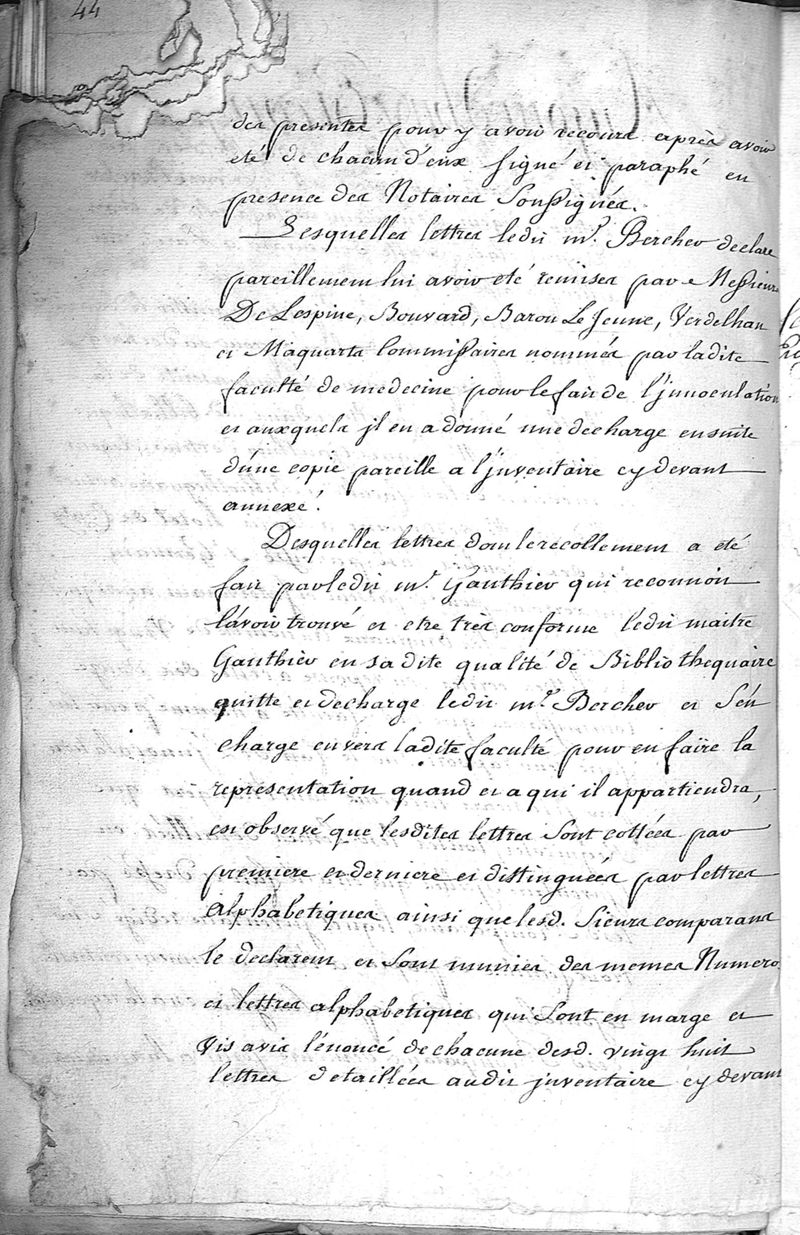 44
des presentes pour y avoir recours après avoir
eté de chacun d'eux signé et paraphé en
presence des Notaires Soussignés.
Lesquelles lettres ledit mr. Bercher declare
pareillement lui avoir eté remises par Messieurs
De Lespine, Bouvard, Baron Le Jeune, Verdelhan
et Maquarts Commissaires nommés par ladite
faculté de medecine pour le fait de l'jnnoculation
et auxquels jl en a donné une decharge ensuite
d'une copie pareille a l'jnventaire cy devant
annexé.
Desquelles lettres dont le recollement a été
fait par ledit mr. Gauthier qui reconnoit
l'avoir trouvé et etre très conforme ledit maitre
Gauthier en sa dite qualité de Bibliothequaire
quitte et decharge ledit mr. Bercher et s'en
charge envers ladite faculté pour en faire la
representation quand et a qui il appartiendra,
est observé que lesdites lettres sont cottées par
premiere et derniere et distinguées par lettres
alphabetiques ainsi que lesd. Sieurs comparans
le declarent et sont munies des memes Numero
et lettres alphabetiques qui sont en marge et
vis avis l'énoncé de chacune desd. vingt huit
lettres detaillées audit jnventaire cy devant